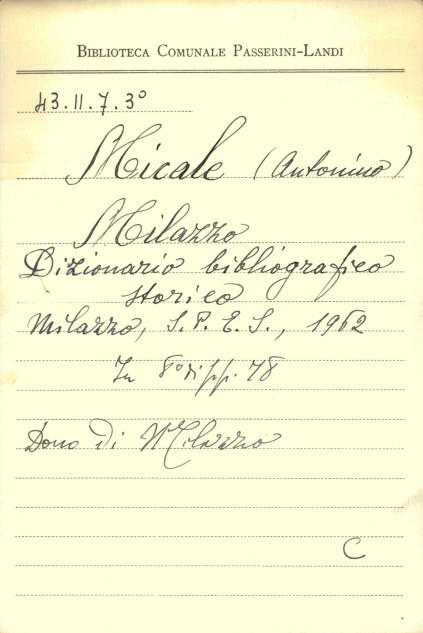 BIBLIOTECA COMUNALE PASSERINI-LANDI
43.II.7.3°
Micale (Antonino)
Milazzo
Dizionario bibliografico
storico
Milazzo, S.P.E.S., 1962
In 8° di pp. 78
Dono di Milazzo
C